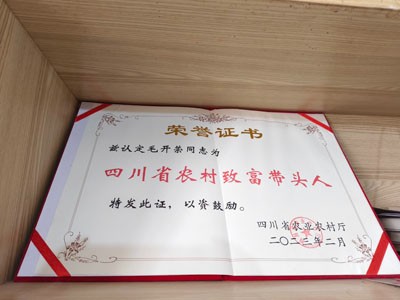 荣誉证书
兹认定毛开荣同志为
四川省农村致富带头人
特发此证，以资鼓励。
四川省农业农村厅
二〇二三年二月